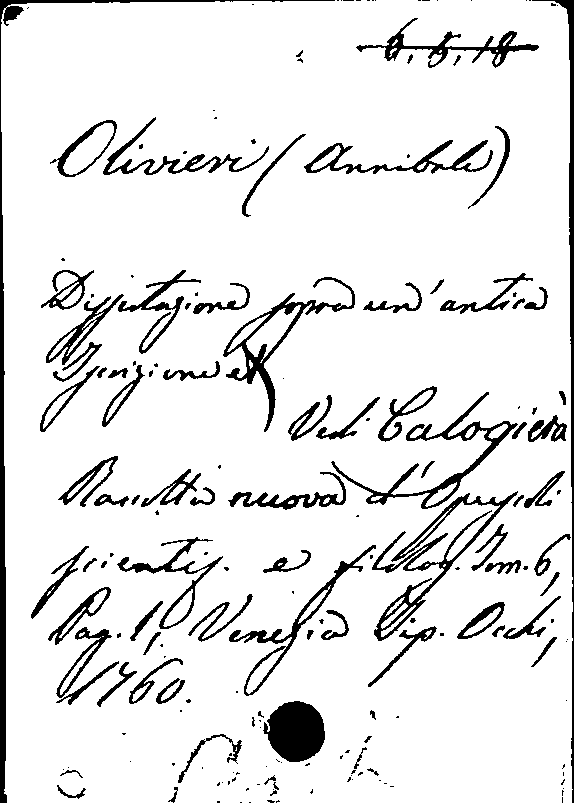 6.5.18
Olivieri (Annibale)
Dissertazione sopra un' antica
Iscrizione
Vedi Calogierà
Raccolta nuova d'Opuscoli
scientif. e filolog. Tom. 6,
Pag. 1, Venezia Tip. Occhi,
1760.